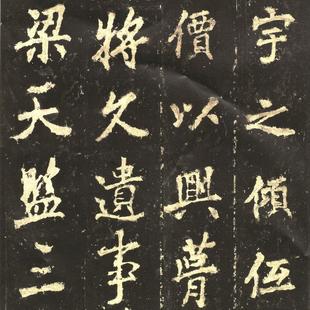 宇之傾伍
價以興
將久遺事
梁天監三